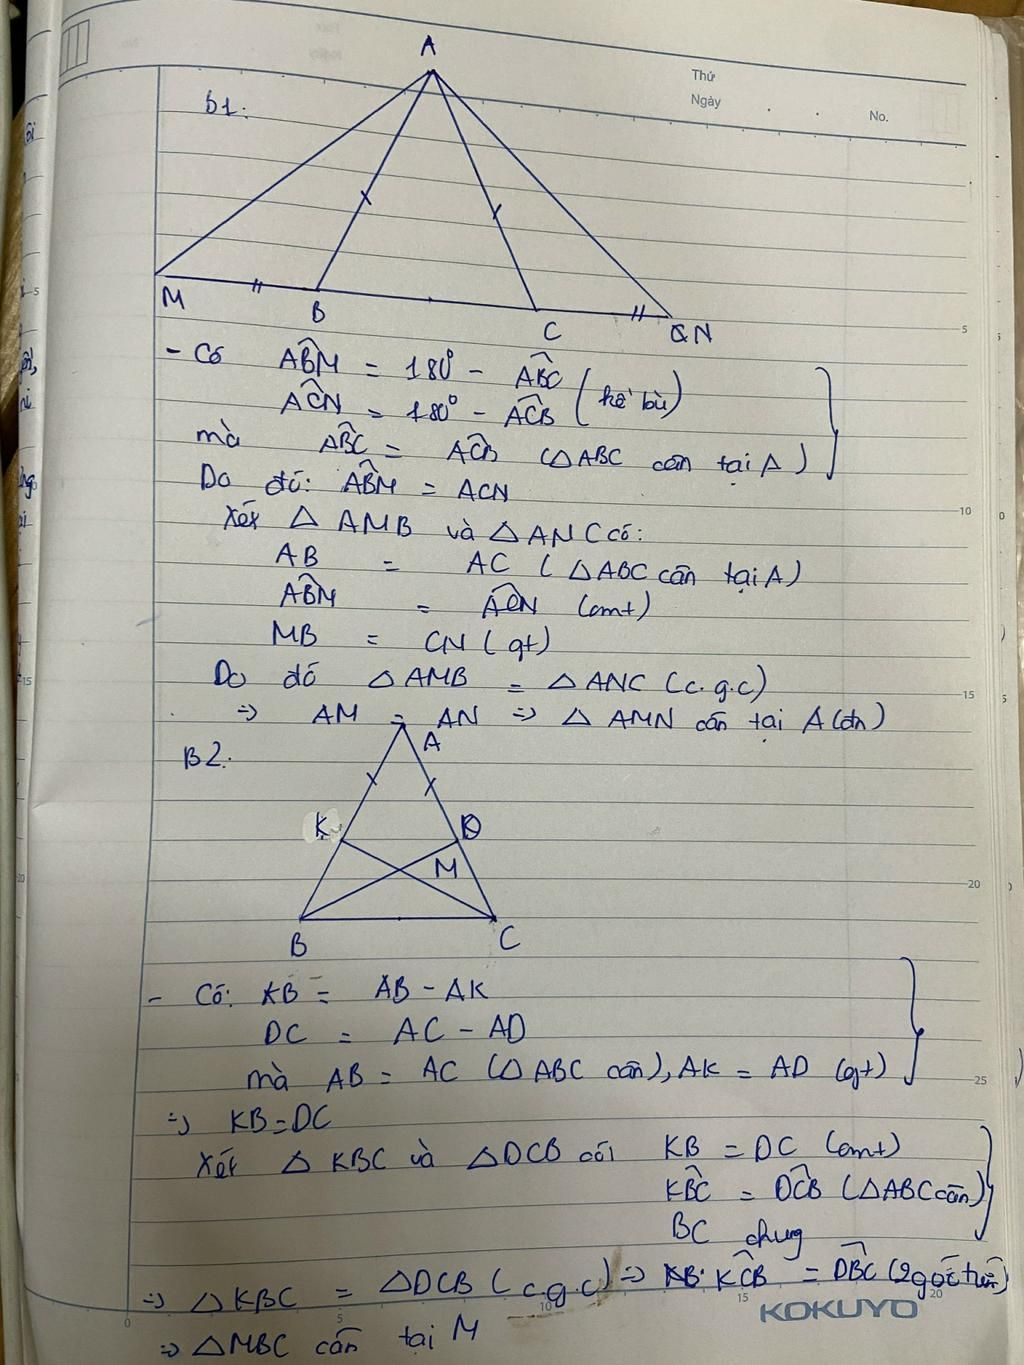 A
Thứ
Ngày
No.
b1:
M
B
C
N
5
- Có ABM = 180° - ABC
ACN = 180° - ACB (kề bù)
mà ABC = ACB (△ABC cân tại A)
Do đó: ABM = ACN
10
Xét △ AMB và △ANC có:
AB = AC (△ABC cân tại A)
ABM = ACN (cmt)
MB = CN (gt)
Do đó △AMB = △ANC (c.g.c)
15
=> AM = AN => △ AMN cân tại A (đn)
B2.
A
K
D
M
20
B
C
- Có: KB = AB - AK
DC = AC - AD
mà AB = AC (△ABC cân), AK = AD (gt)
25
=> KB=DC
Xét △ KBC và △DCB có: KB = DC (cmt)
KBC = DCB (△ABC cân)
BC chung
=> △KBC = △DCB (c.g.c) => KCB = DBC (2 góc t/ứ)
0
5
10
15
20
KOKUYO
=> △MBC cân tại M